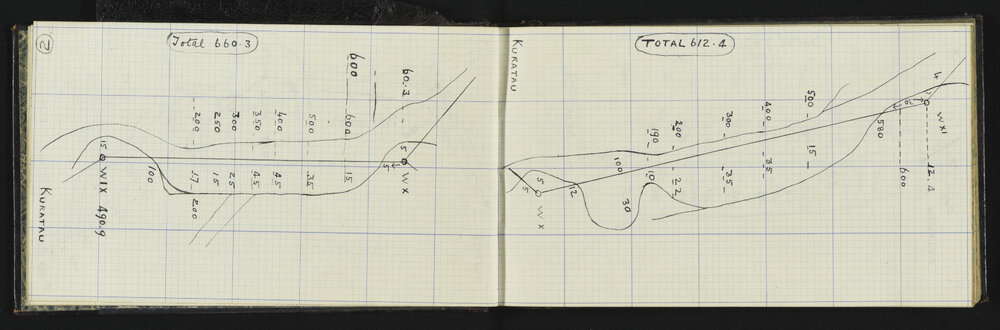 2
Total 660.3
600
60.3
200
250
300
350
400
500
600
15
5
5
WX
15
WIX 490.9
100
17
15
25
45
45
35
15
200
KURATAU
KURATAU
TOTAL 612.4
500
400
300
200
190
100
35
15
35
22
10
580
4
WXI
12.4
600
5
WX
12
30